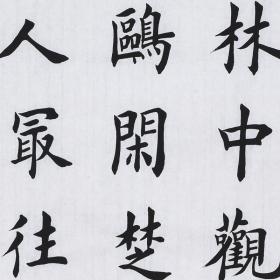 林中觀
鷗閑楚
人冣往